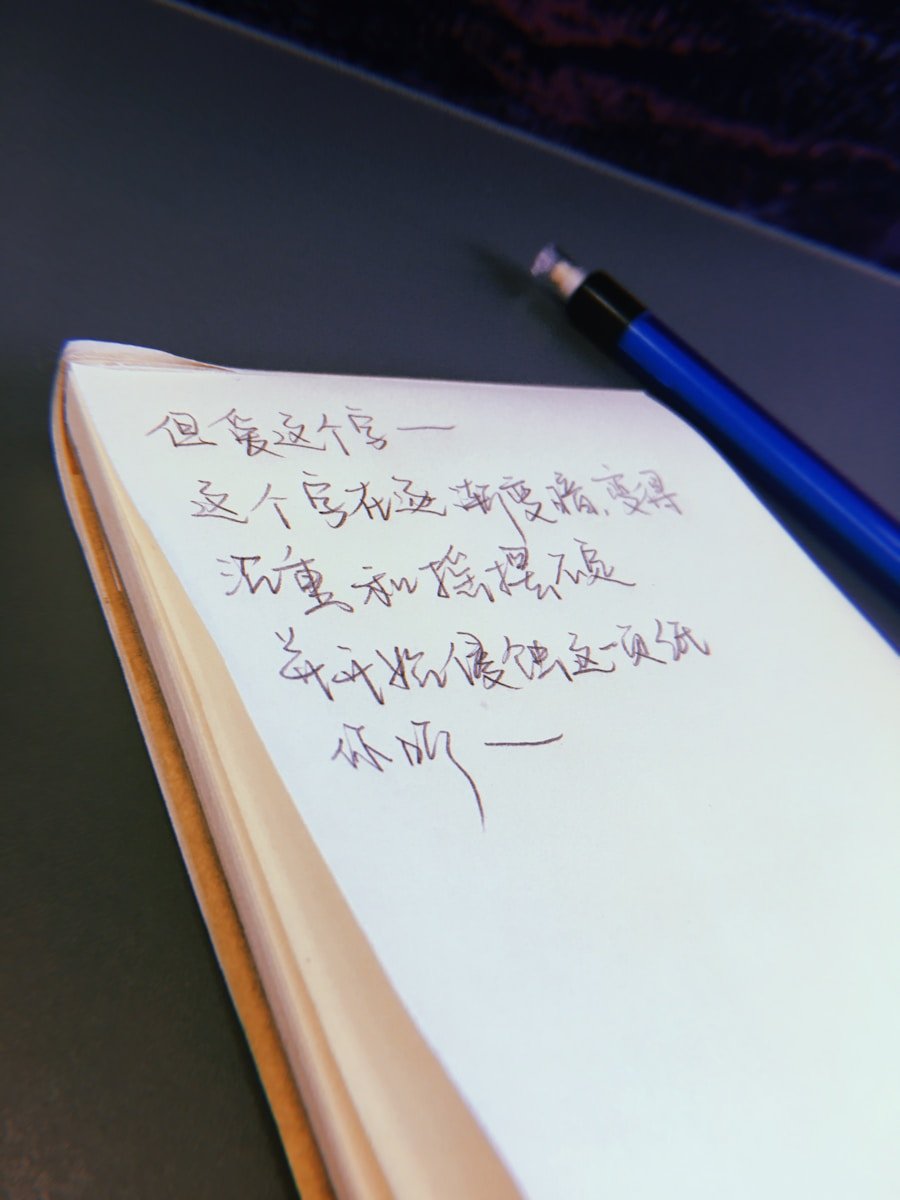 但爱这个字—
这个字在逐渐变暗、变得
沉重和摇摆不定
并开始侵蚀这一页纸
你听—